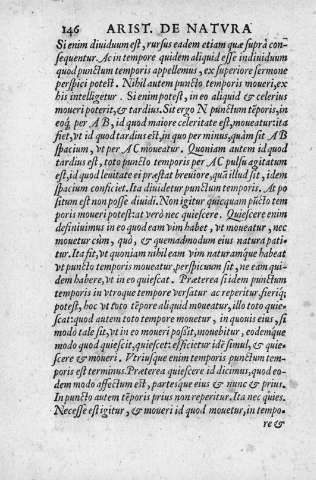 146 ARIST. DE NATVRA
Si enim diuiduum est, rursus eadem etiam quæ suprà con-
sequentur. Ac in tempore quidem aliquid esse indiuiduum
quod punctum temporis appellemus, ex superiore sermone
perspici potest. Nihil autem puncto temporis moueri, ex
his intelligetur. Si enim potest, in eo aliquid & celerius
moueri poterit, & tardius. Sit ergo N punctum tēporis, in
eoq́; per A B, id quod maiore celeritate est, moueatur: ita
fiet, vt id quod tardius est, in quo per minus, quàm sit A B
spacium, vt per A C moueatur. Quoniam autem id quod
tardius est, toto puncto temporis per A C pulsu agitatum
est, id quod leuitate ei præstat breuiore, quā illud sit, idem
spacium conficiet. Ita diuidetur punctum temporis. At po
situm est non posse diuidi. Non igitur quicquam pūcto tem
poris moueri potest: at verò nec quiescere. Quiescere enim
definiuimus in eo quod eam vim habet, vt moueatur, nec
mouetur cùm, quo, & quemadmodum eius natura pati-
tur. Ita fit, vt quoniam nihil eam vim naturamq́ue habeat
vt puncto temporis moueatur, perspicuum sit, ne eam qui-
dem habere, vt in eo quiescat. Præterea si idem punctum
temporis in vtroque tempore versatur ac reperitur, fieriq́;
potest, hoc vt toto tēpore aliquid moueatur, illo toto quie-
scat: quod autem toto tempore mouetur, in quouis eius, si
modo tale sit, vt in eo moueri possit, mouebitur, eodemque
modo quod quiescit, quiescet: efficietur idē simul, & quie-
scere & moueri. Vtriusque enim temporis punctum tem-
poris est terminus. Præterea quiescere id dicimus, quod eo-
dem modo affectum est, partesque eius & nunc & prius.
In puncto autem tēporis prius non reperitur. Ita nec quies.
Necesse est igitur, & moueri id quod mouetur, in tempo-
re &